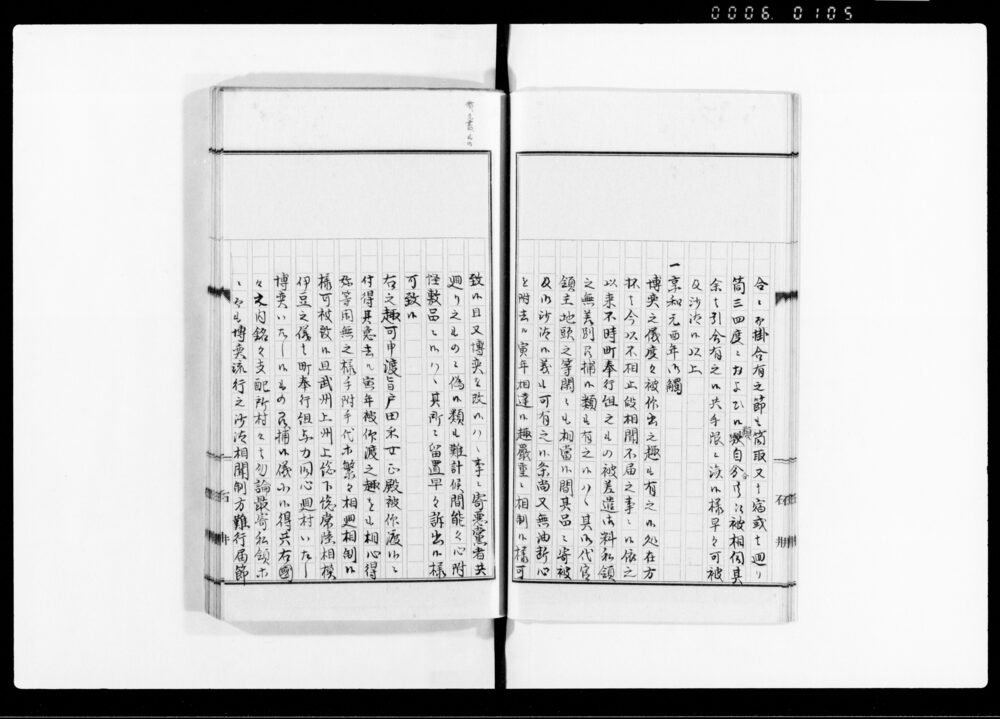 0006. 0105
合ニ不掛合有之節も筒取又は宿或は廻り
筒三四度ニおよひ候類自分は被相伺其
余は引合有之候共手限ニ済候様早々可被
及沙汰候以上
一享和元酉年御触
博奕之儀度々被仰出之趣も有之候処在方
抔は今以不相止段相聞不届之事ニ候依之
以来不時町奉行組之もの被差遣御料私領
之無差別召捕候類も有之候ハヽ其所代官
領主地頭之等閑ニも相当候間其品ニ寄被
及御沙汰候義も可有之候条尚又無油断心
を附去ル寅年相達候趣厳重ニ相制候様可
致候且又博奕を改候ハヽ事ニ寄悪党者共
廻り之ものと偽候類も難計候間能々心附
怪敷品ニ候ハヽ其所ニ留置早々訴出候様
可致候
右之趣可申渡旨戸田采女正殿被仰渡候ニ
付得其意去ル寅年被仰渡之趣をも相心得
弥等閑無之様手附手代共繁々相廻相制候
様可被致候且武州上州上総下総常陸相模
伊豆之儀は町奉行組与力同心廻村いたし
博奕いたし候もの召捕候儀ニ候得共右国
々之内銘々支配所村々は勿論最寄私領ホ
ニ而も博奕流行之沙汰相聞制方難行届節